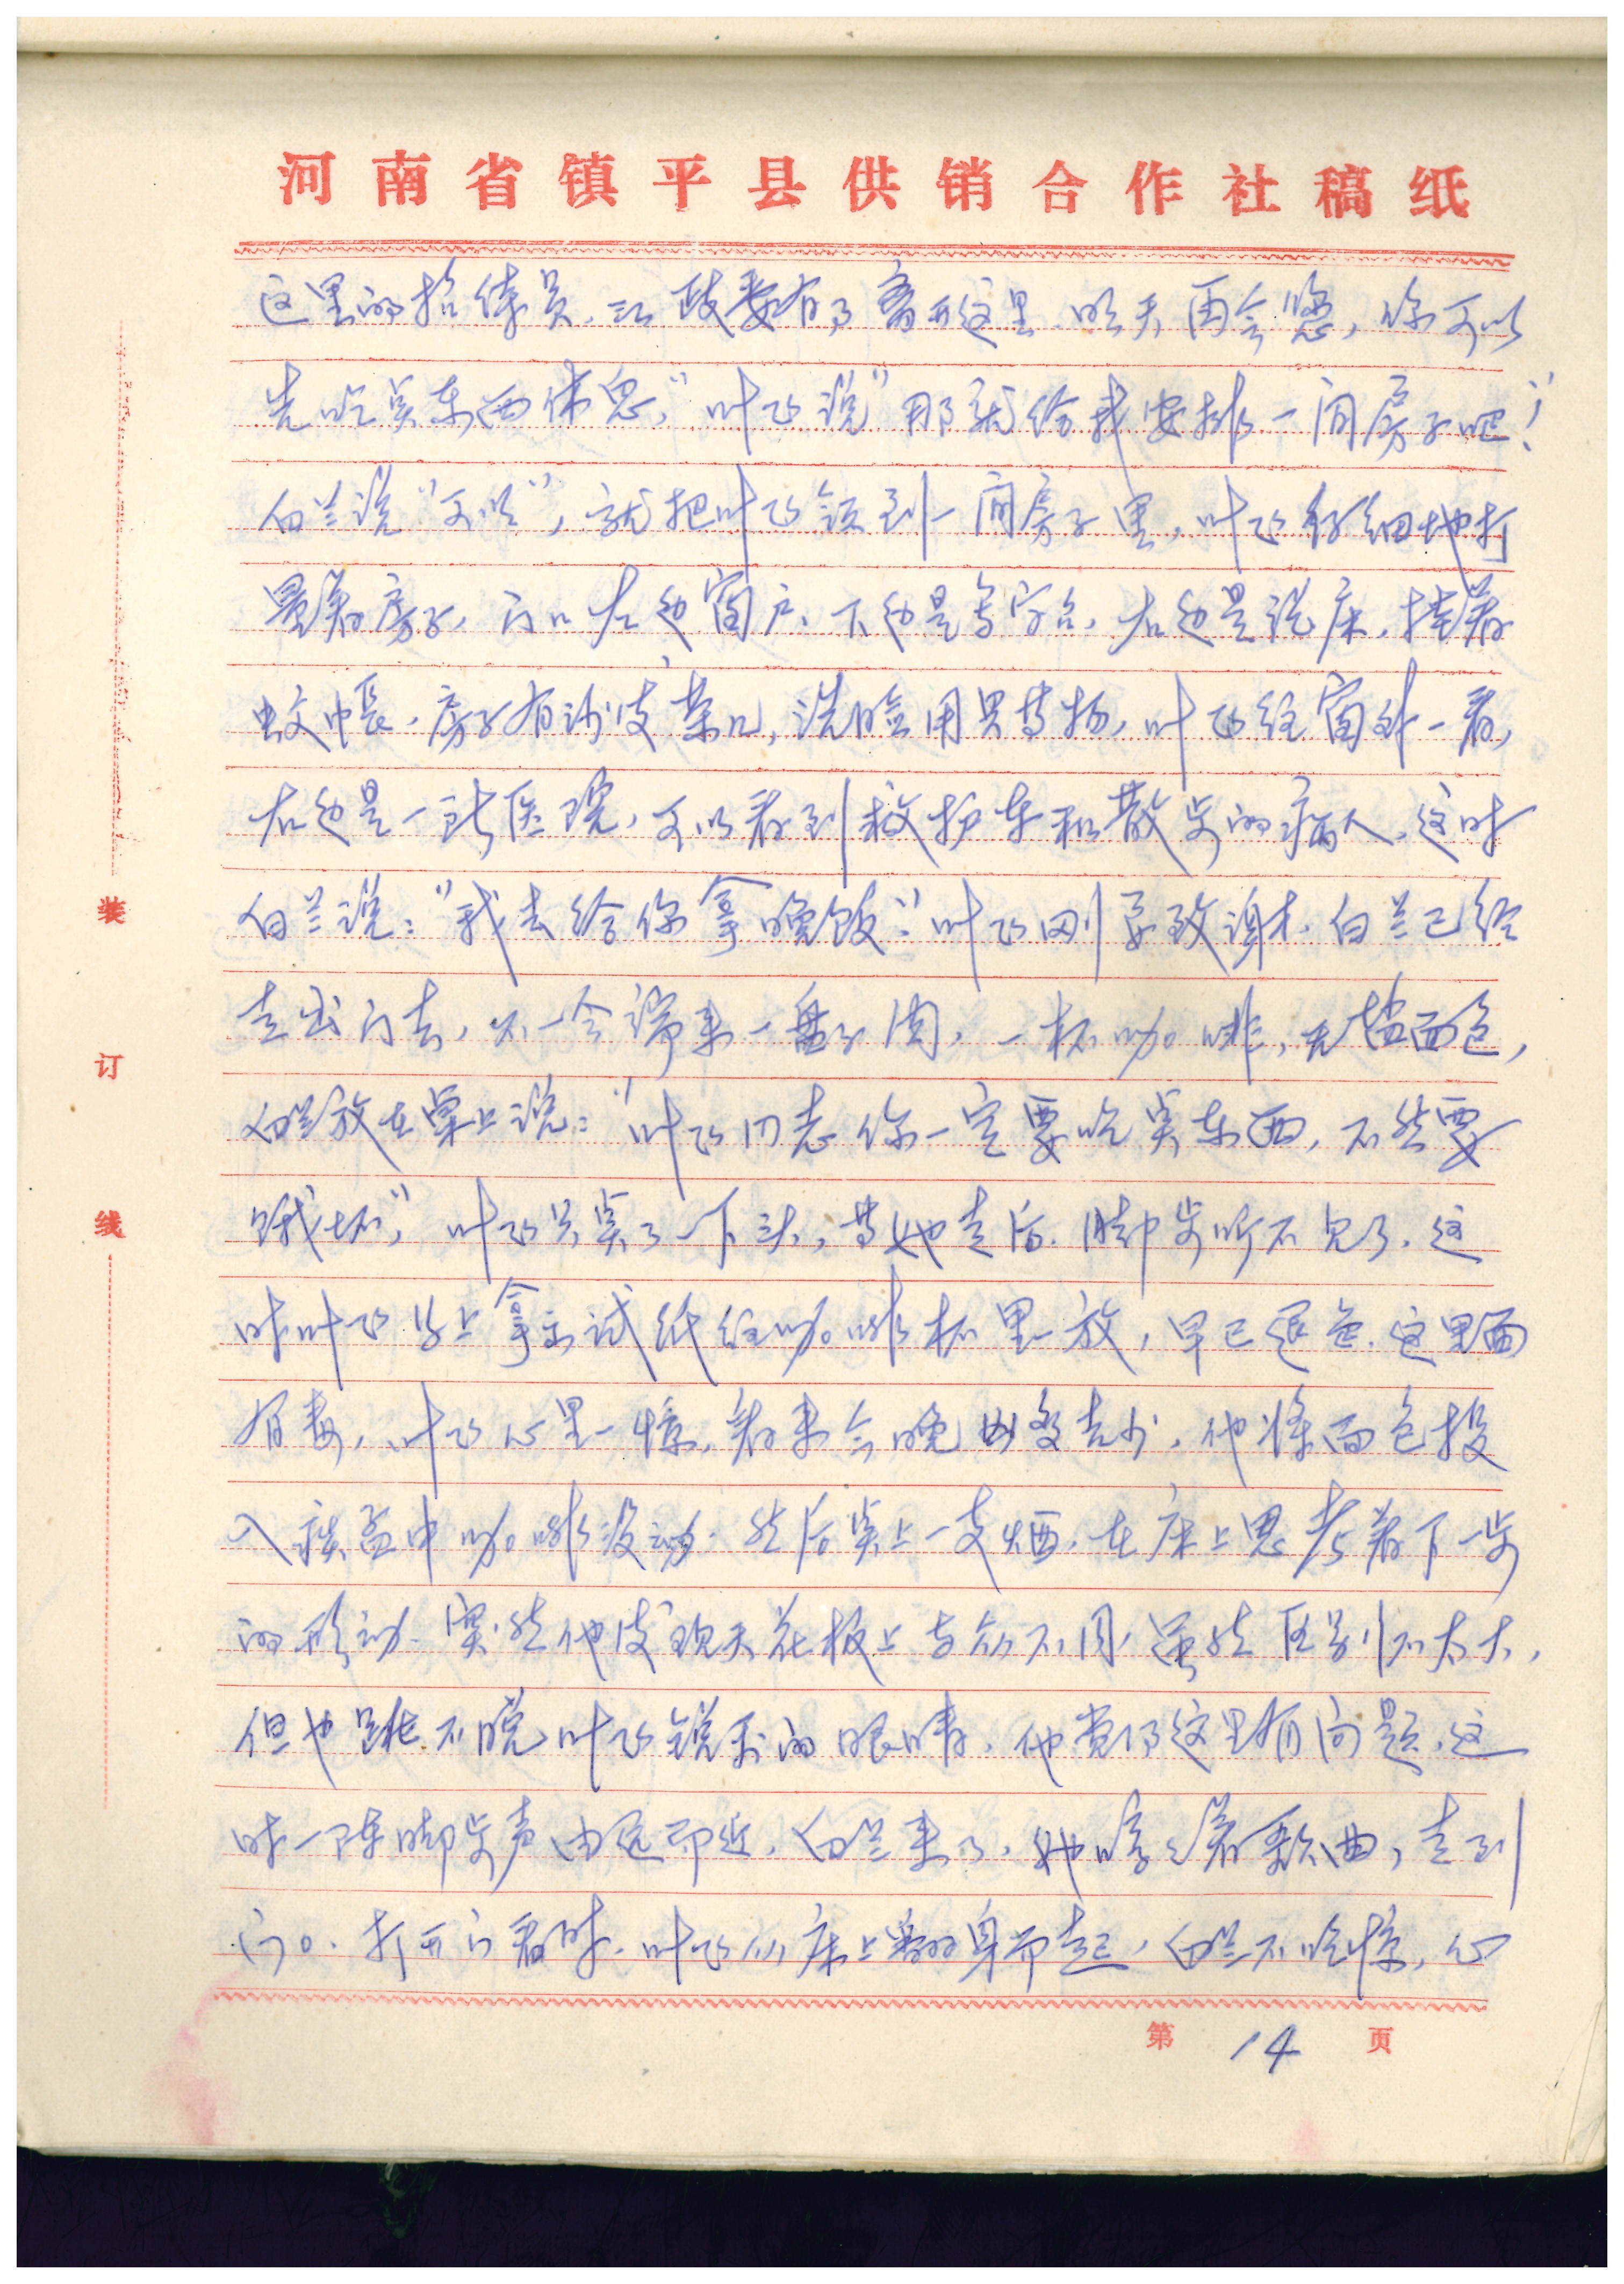 河南省镇平县供销合作社稿纸
这里的招待员,江枝要有事离开这里,明天再会您,你可以
先吃点东西休息,"叶飞说"那就给我安排一间房子吧!"
白兰说"可以",就把叶飞领到一间房子里,叶飞仔细地打
量着房子,门口左边窗户,下边是写字台,右边是说床,挂着
蚊帐,房子有沙发茶几,洗脸用具等物,叶飞往窗外一看,
右边是一所医院,可以看到救护车和散步的病人,这时
白兰说:"我去给你拿晚饭"叶飞刚要致谢,白兰已经
走出门去,不一会端来一盘子肉,一杯咖啡,无挡面包,
白兰放在桌上说:"叶飞同志你一定要吃点东西,不然要
饿坏",叶飞只点了一下头,等她走后,脚步听不见了,这
时叶飞马上拿出试纸往咖啡杯里一放,早已退色,这里面
有毒,叶飞心里一惊,看来今晚凶多吉少,他将面包投
入痰盂中咖啡没动,然后点上一支烟,在床上思考着下一步
的行动,突然他发现天花板上与众不同,虽然区别不太大,
但也跳不脱叶飞锐利的眼睛,他觉得这里有问题,这
时一阵脚步声由远而近,白兰来了,她哼着歌曲,走到
门口,打开门看时,叶飞从床上翻身而起,白兰不吃惊,心
装
订
线
第 14 页